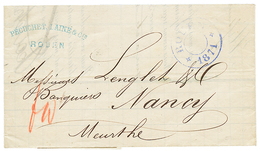 PÉCUCHET AINÉ & CO
ROUEN
1871
Messieurs Lenglet & C
Banquiers
Nancy
Meurthe